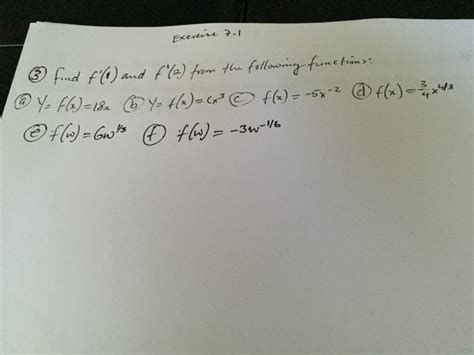 Exercise 7.1
③ Find f'(1) and f'(2) from the following functions:
ⓐ Y = f(x) = 18x ⓑ Y = f(x) = cx³ ⓒ f(x) = -5x⁻² ⓓ f(x) = 3/4 x⁴ᐟ³
ⓔ f(w) = 6w¹ᐟ³ ⓕ f(w) = -3w⁻¹ᐟ⁶